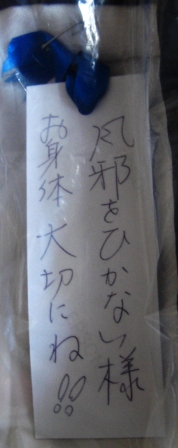 風邪をひかない様
お身体大切にね!!